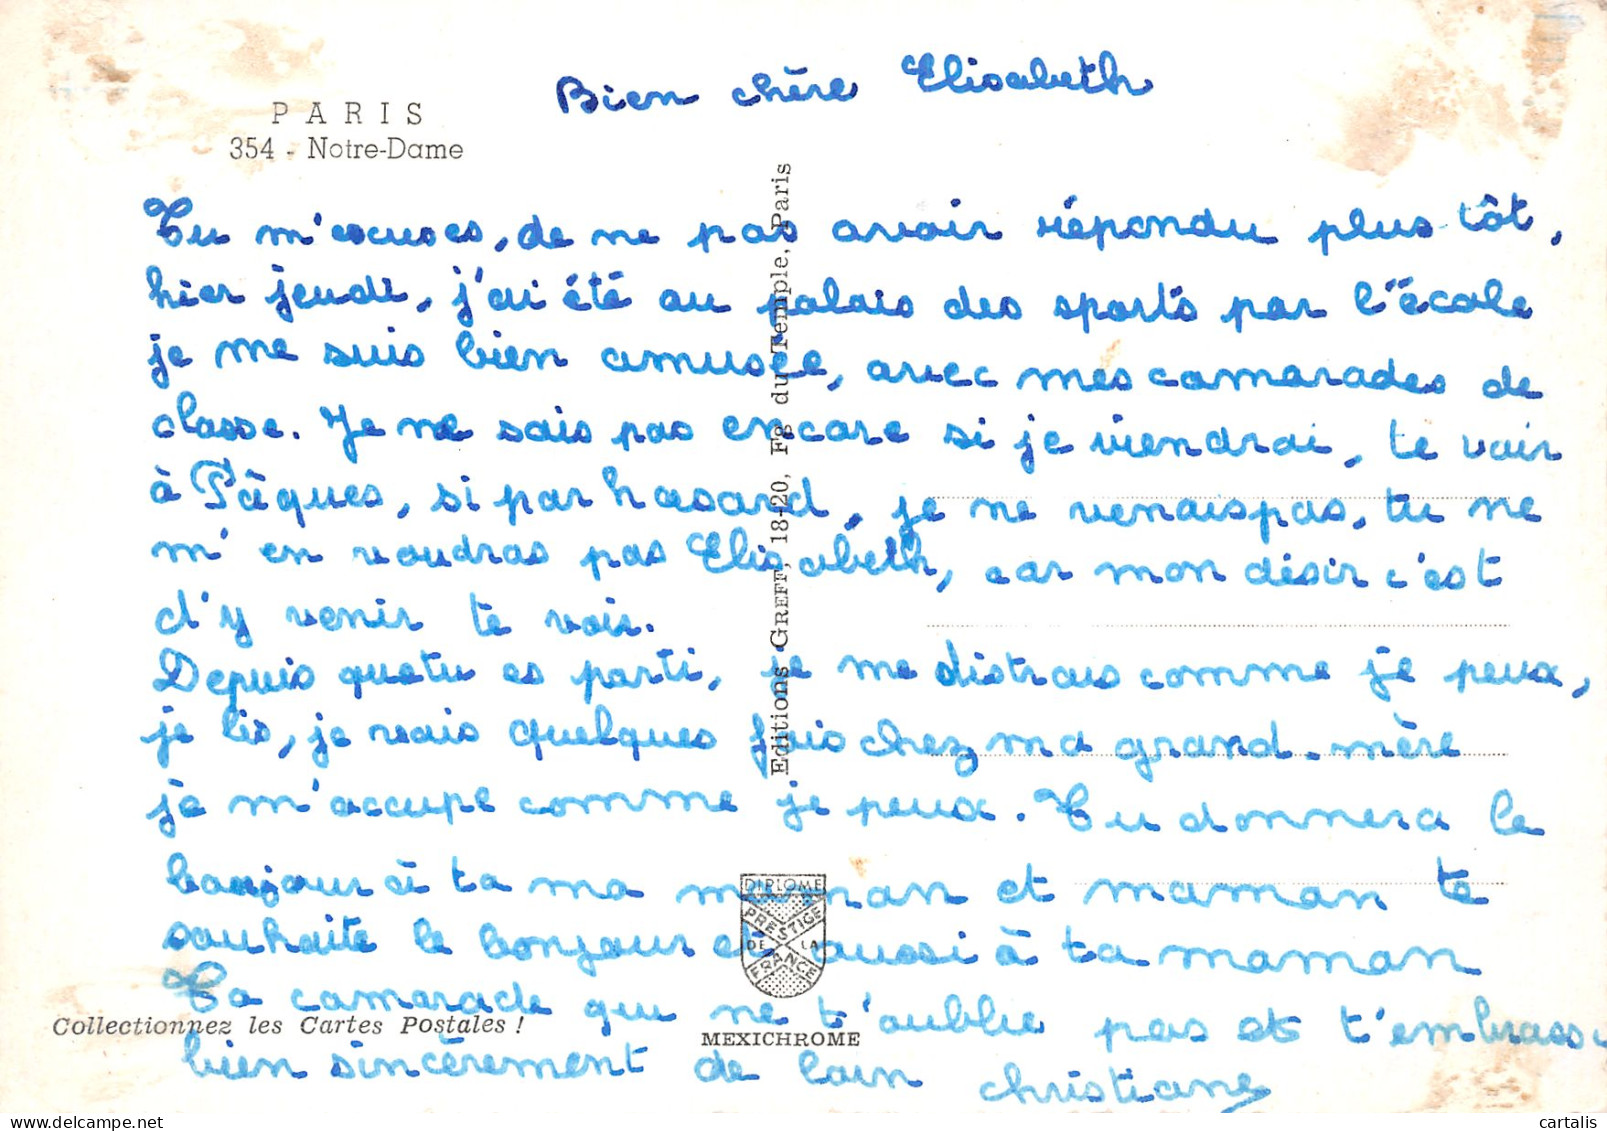 Bien chère Elisabeth
PARIS
354 - Notre-Dame
Tu m'escuses, de ne pas avoir répondu plus tôt,
hier jeudi, j'ai été au palais des sports par l'école
je me suis bien amusée, avec mes camarades de
classe. Je ne sais pas encore si je viendrai, te voir
à Pâques, si par hasard, je ne venais pas, tu ne
m'en voudras pas Elisabeth, car mon désir c'est
d'y venir te voir.
Depuis que tu es parti, je me distrais comme je peux,
je lis, je vais quelques fois chez ma grand-mère
je m'accupe comme je peux. Tu donnera le
bonjour à ta ma maman et maman te
souhaite le bonjour et aussi à ta maman
Ta camarade qui ne t'oublie pas et t'embrasse
bien sincèrement de loin christiane
Editions GREFF, 18-20, Fg du Temple, Paris
DIPLOME
PRESTIGE
DE LA
FRANCE
Collectionnez les Cartes Postales !
MEXICHROME
cartalis